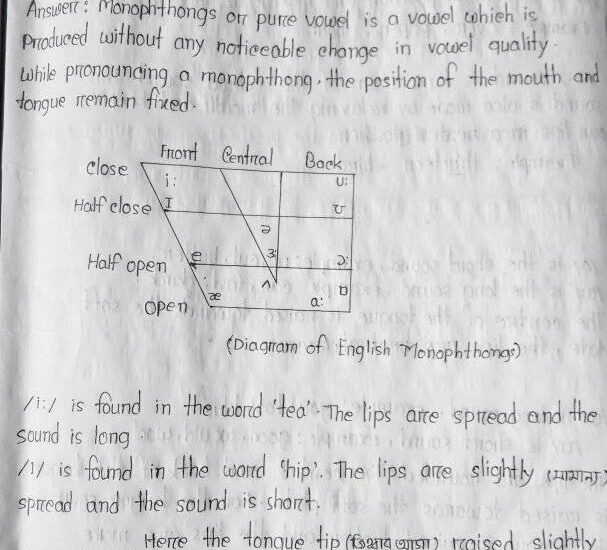 Answer: Monophthongs or pure vowel is a vowel which is
produced without any noticeable change in vowel quality.
While pronouncing a monophthong, the position of the mouth and
tongue remain fixed.
Front Central Back
Close i: u:
Half close I ʊ
ə
Half open e ɜ ɔ:
ʌ ɒ
open æ a:
(Diagram of English Monophthongs)
/i:/ is found in the word 'tea'. The lips are spread and the
sound is long
/I/ is found in the word 'hip'. The lips are slightly (সামান্য)
spread and the sound is short.
Here the tongue tip (জিহ্বার আগা) raised slightly